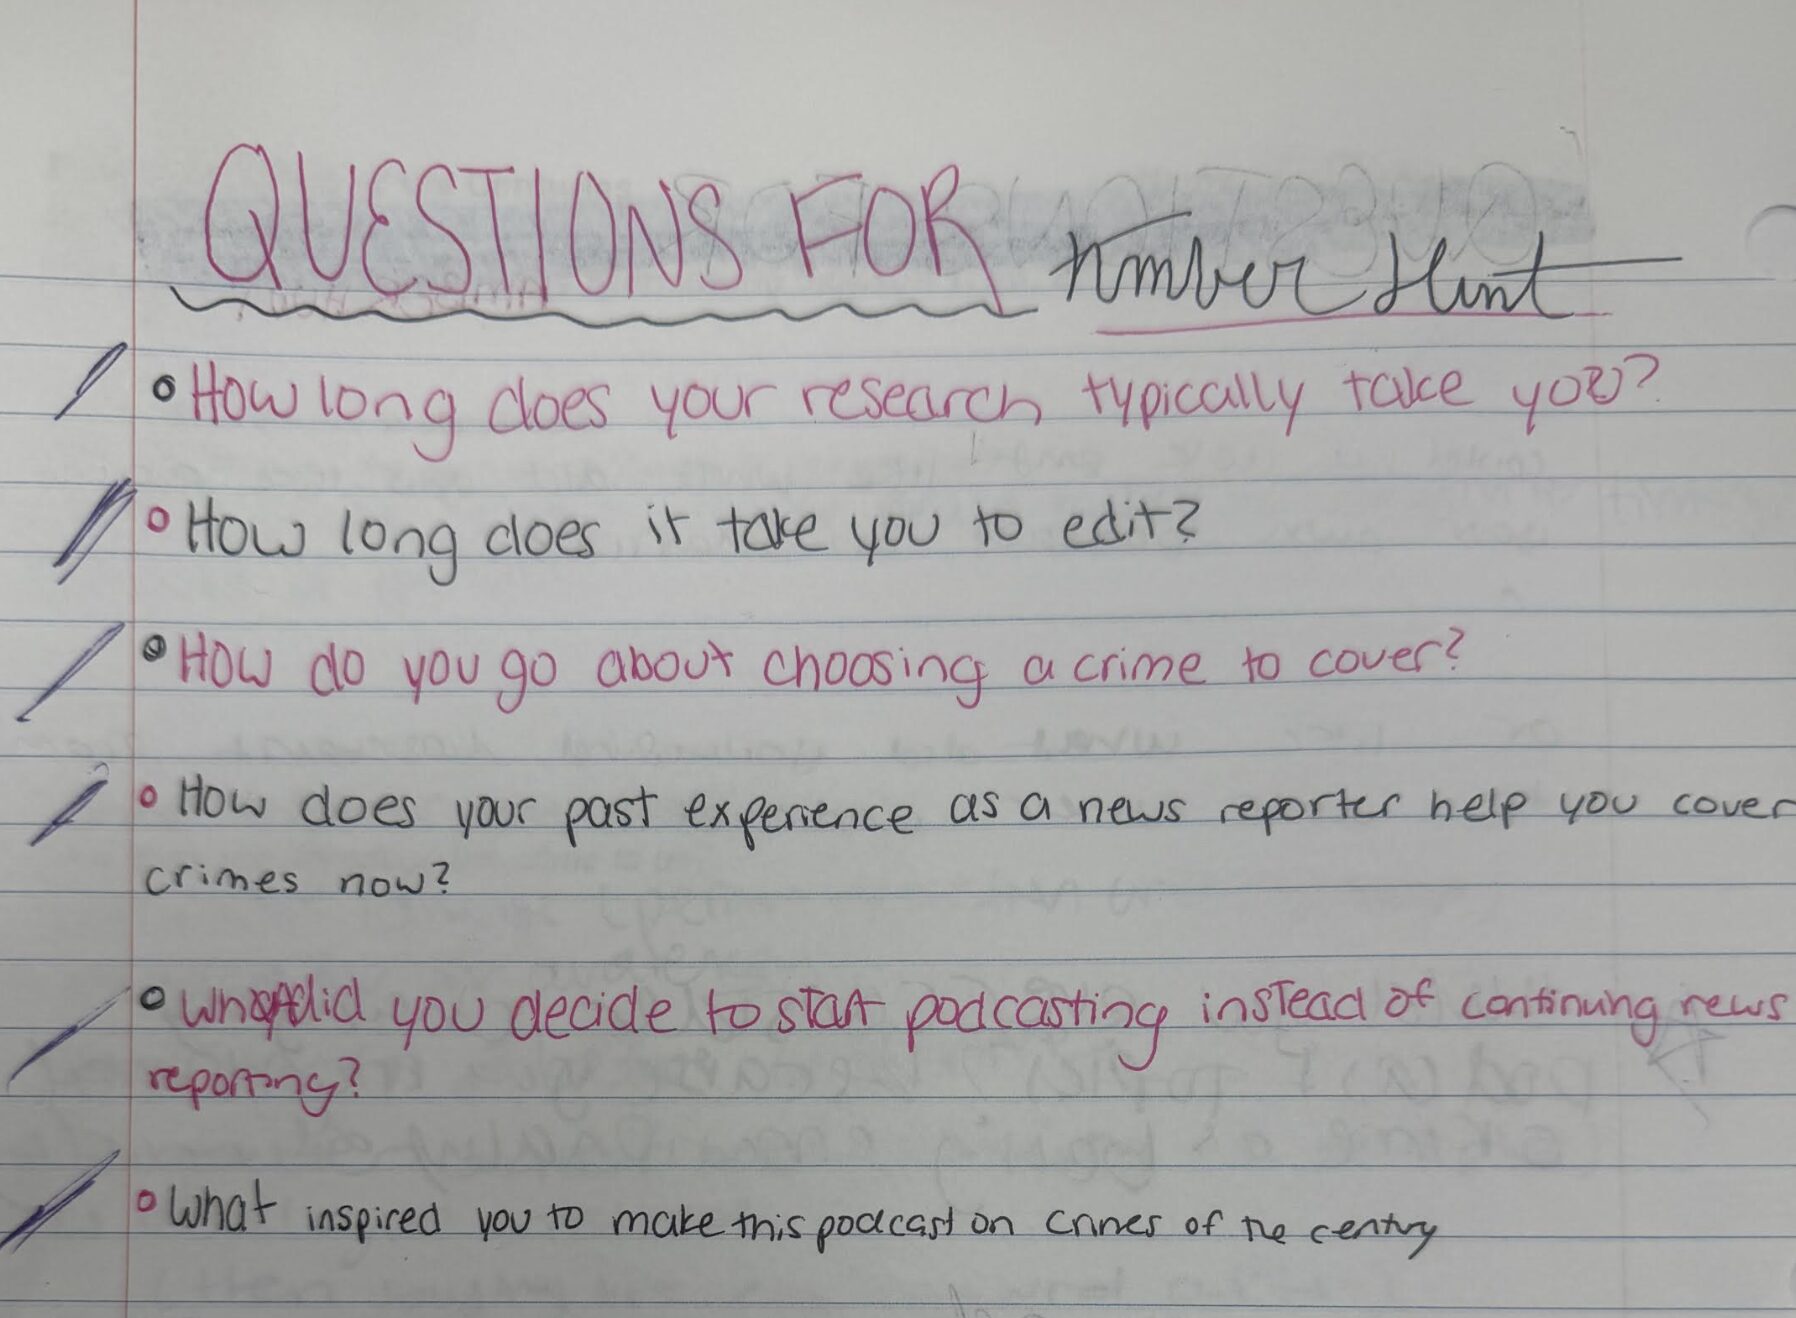 QUESTIONS FOR Amber Hunt
• How long does your research typically take you?
• How long does it take you to edit?
• How do you go about choosing a crime to cover?
• How does your past experience as a news reporter help you cover
crimes now?
• did you decide to start podcasting instead of continuing news
reporting?
• What inspired you to make this podcast on crimes of the century